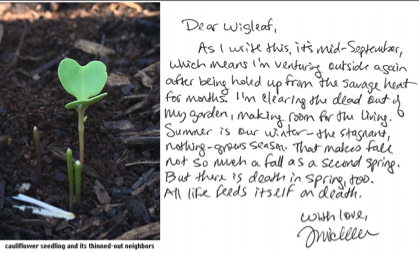 Dear Wigleaf,
As I write this, it's mid-September,
which means I'm venturing outside again
after being holed up from the savage heat
for months. I'm clearing the dead out of
my garden, making room for the living.
Summer is our winter—the stagnant,
nothing-grows season. That makes fall
not so much a fall as a second spring.
But there is death in spring, too.
All life feeds itself on death.
With love,
cauliflower seedling and its thinned-out neighbors